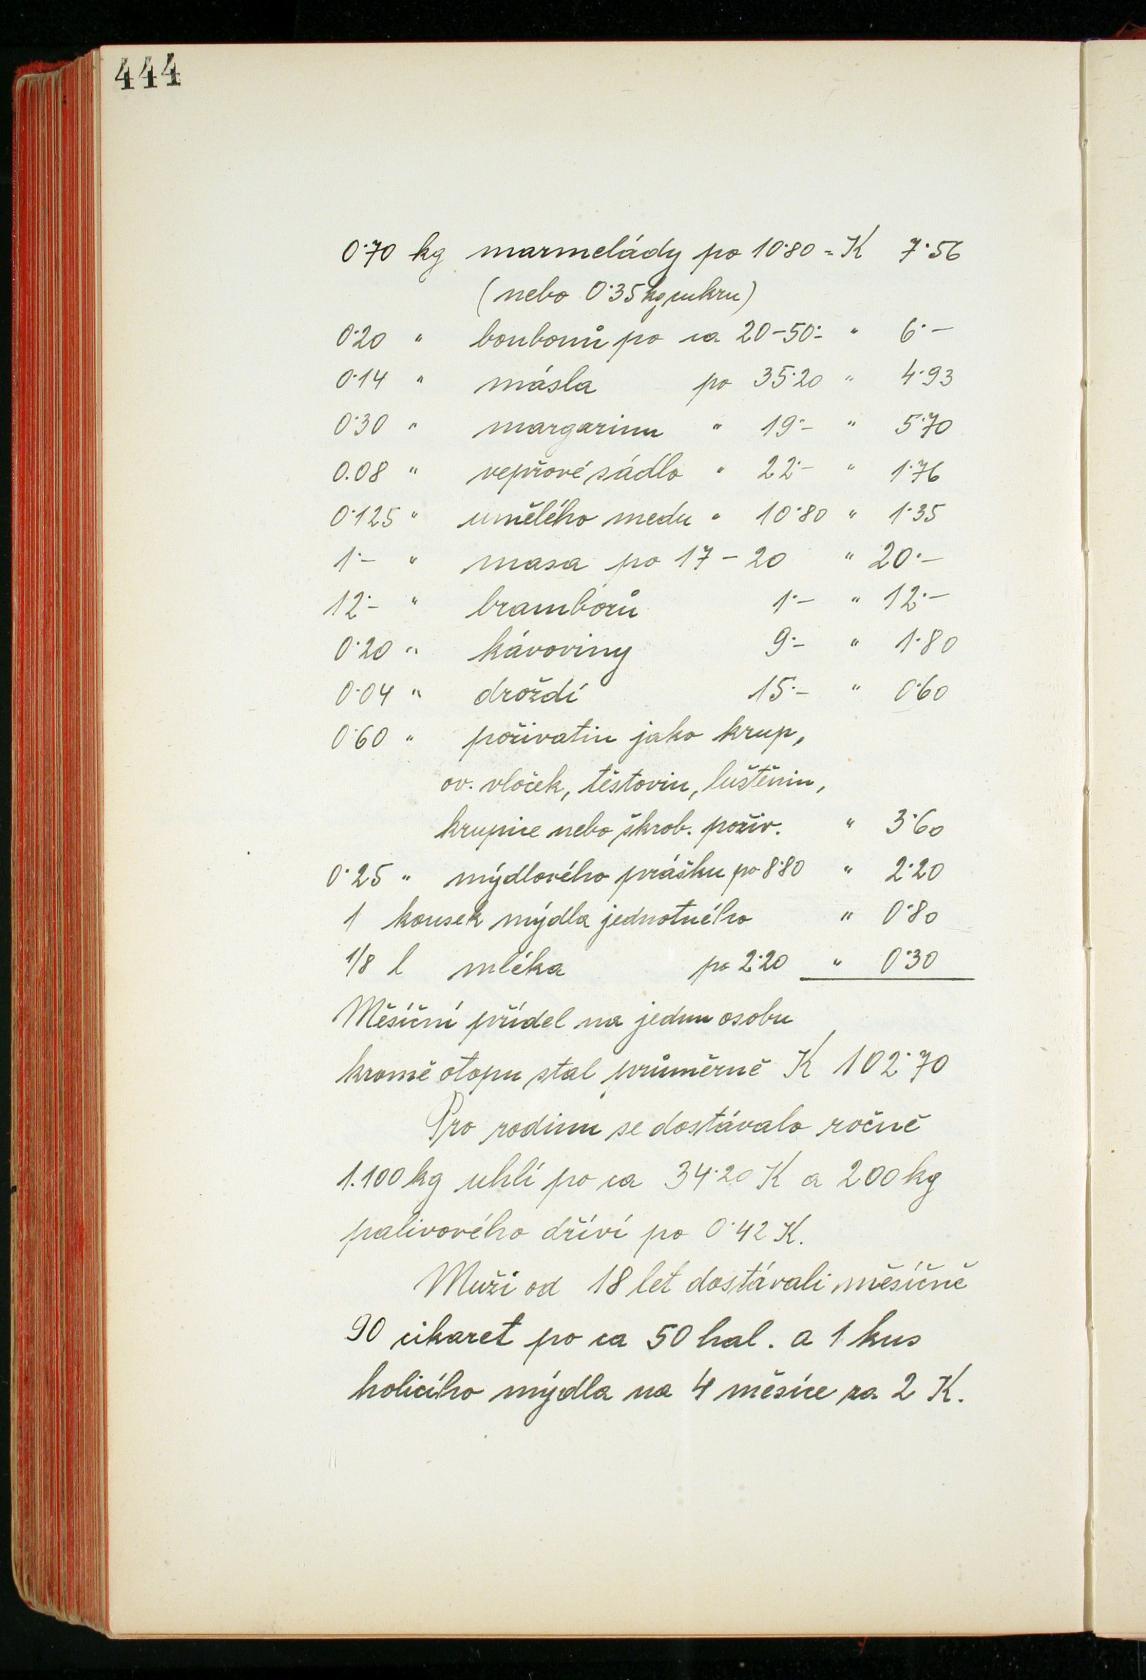 444
0·70 kg marmelády po 10·80 = K 7·56
(nebo 0·35 kg cukru)
0·20 " bonbonů po ca 20-50·- " 6·-
0·14 " másla po 35·20 " 4·93
0·30 " margarinu " 19·- " 5·70
0.08 " vepřové sádlo " 22·- " 1·76
0·125 " umělého medu " 10·80 " 1·35
1·- " masa po 17-20 " 20·-
12·- " bramborů 1·- " 12·-
0·20 " kávoviny 9·- " 1·80
0·04 " droždí 15·- " 0·60
0·60 " poživatin jako krup,
ov. vloček, těstovin, luštěnin,
krupice nebo škrob. poživ. " 3·60
0·25 " mýdlového prášku po 8·80 " 2·20
1 kousek mýdla jednotného " 0·80
1/8 l mléka po 2·20 " 0·30
Měsíční příděl na jednu osobu
kromě otopu stal průměrně K 102·70
Pro rodinu se dostávalo ročně
1.100 kg uhlí po ca 34·20 K a 200 kg
palivového dříví po 0·42 K.
Muži od 18 let dostávali měsíčně
90 cikaret po ca 50 hal. a 1 kus
holicího mýdla na 4 měsíce za 2 K.